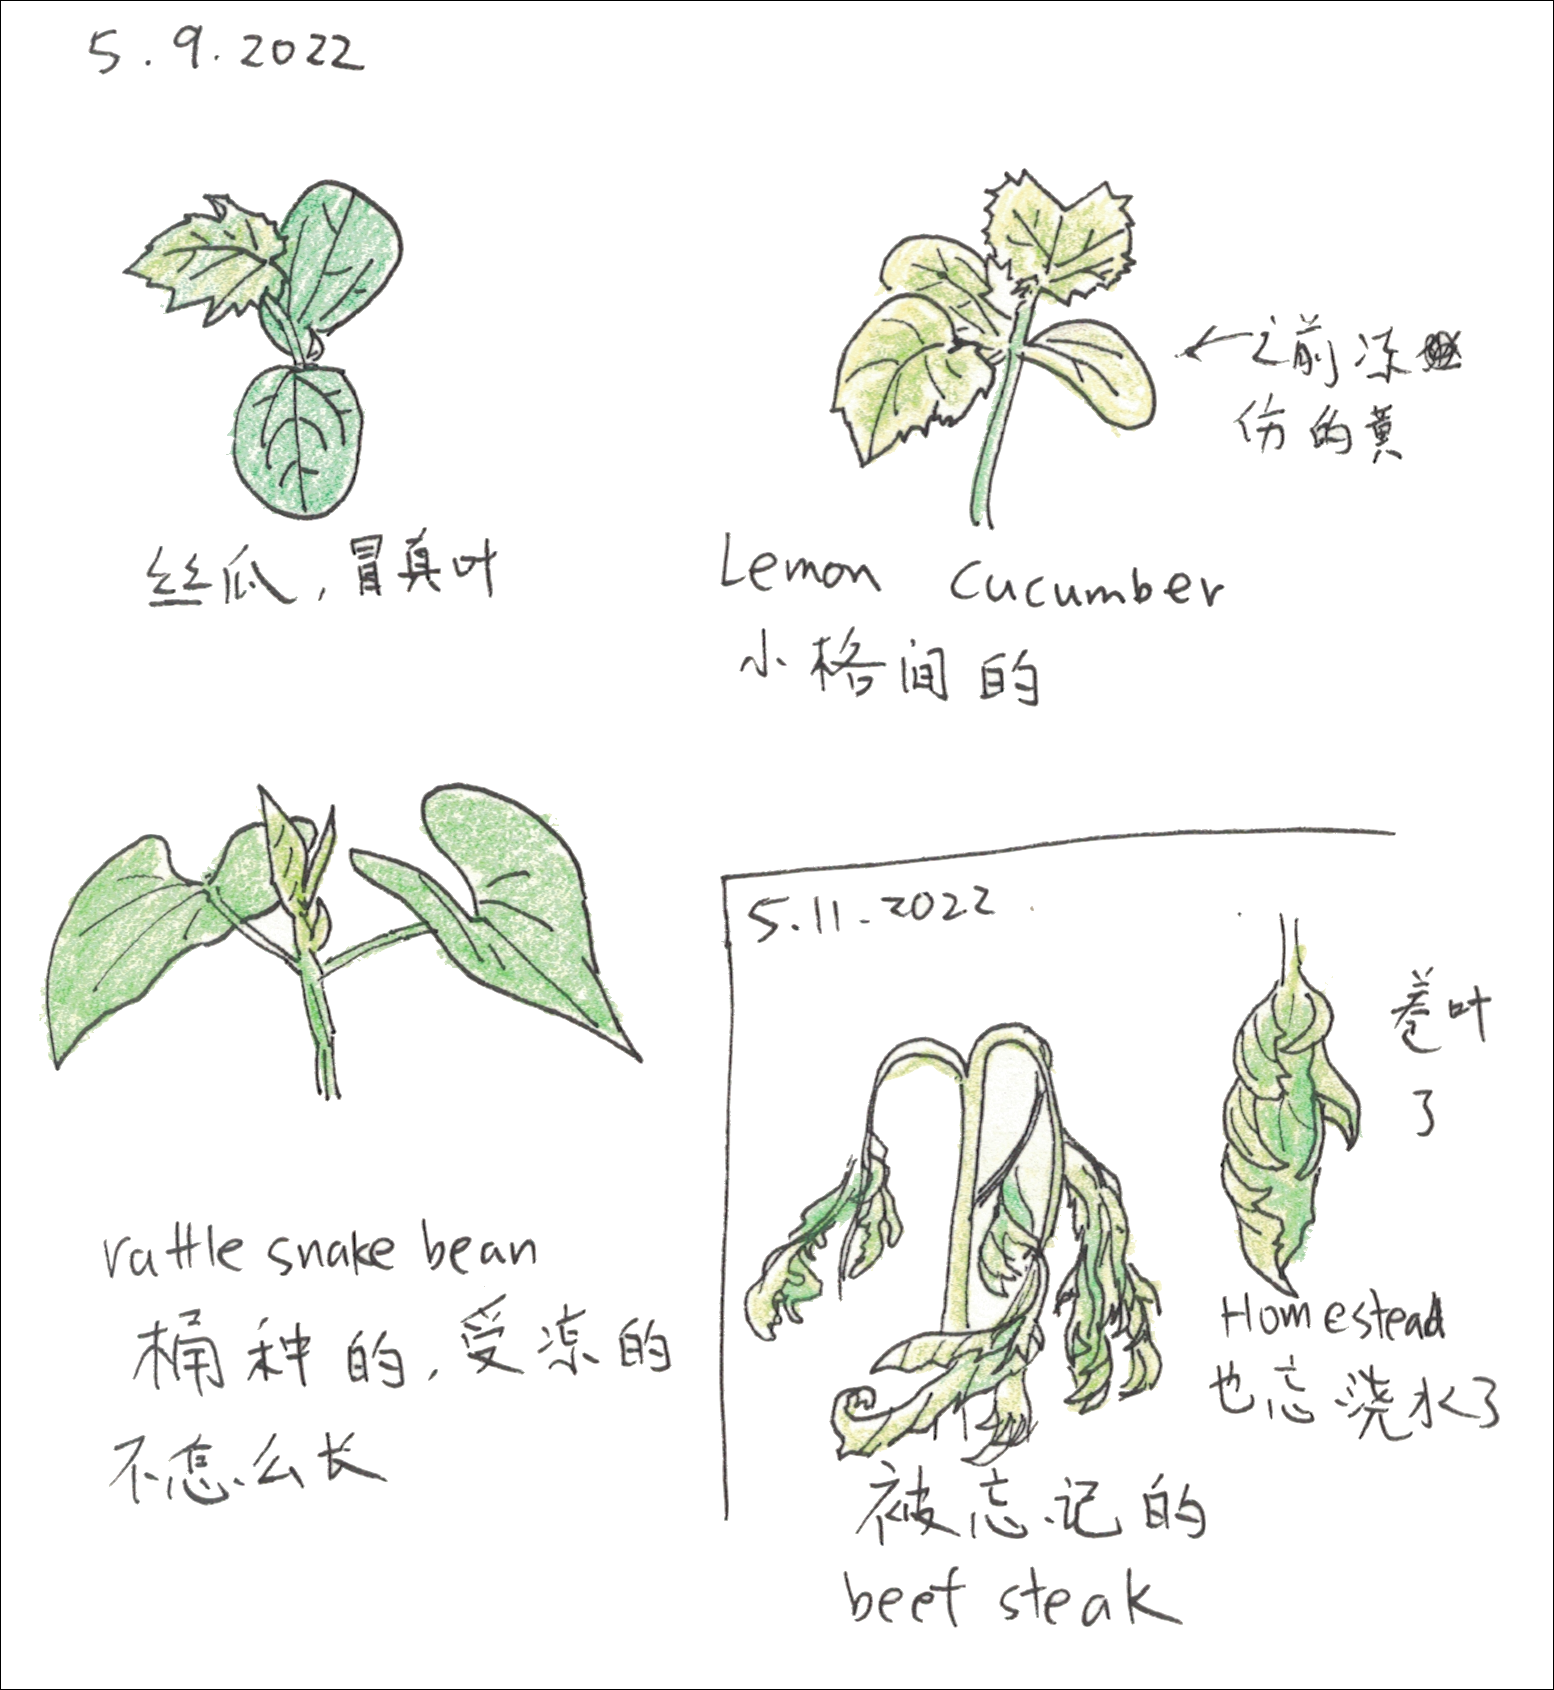 5.9.2022
丝瓜,冒真叶
之前冻
伤的黄
Lemon cucumber
小格间的
rattle snake bean
桶种的,受凉的
不怎么长
5.11.2022
卷叶
了
Homestead
也忘浇水了
被忘记的
beef steak